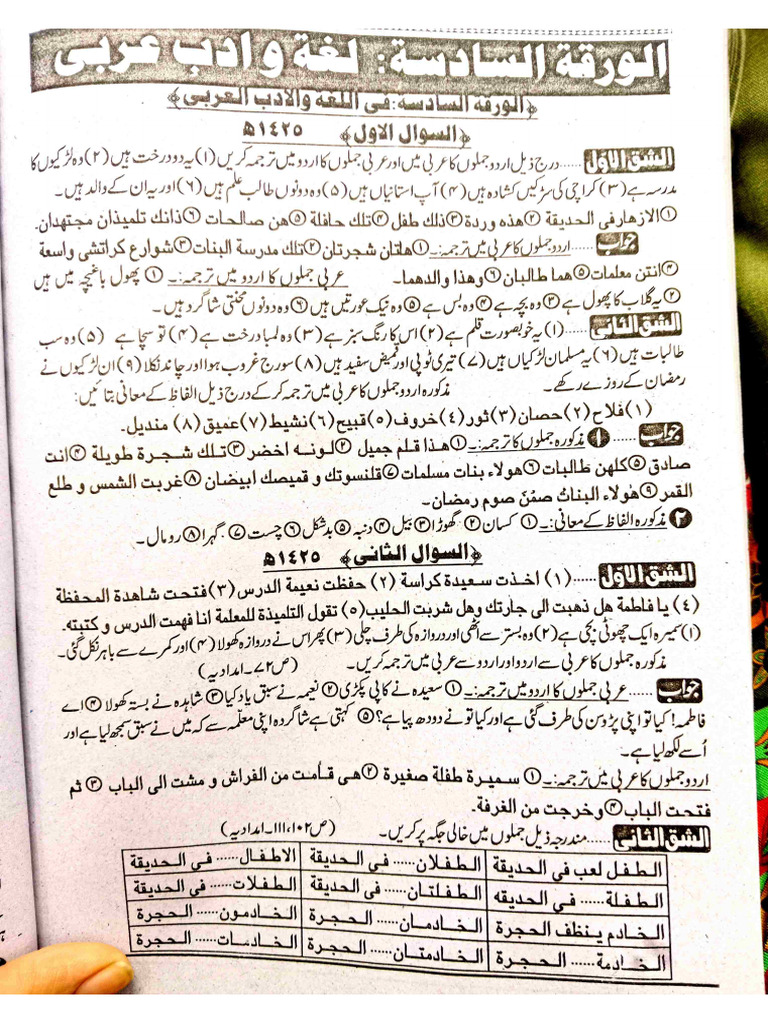 الورقة السادسة: لغة و ادب عربی
﴿الورقة السادسة: فی اللغة والادب العربی﴾
﴿السوال الاول﴾ ١٤٢٥ھ
الشق الاوّل ......درج ذیل اردو جملوں کا عربی میں اور عربی جملوں کا اردو میں ترجمہ کریں (۱) یہ دو درخت ہیں (۲) وہ لڑکیوں کا
مدرسہ ہے (۳) کراچی کی سڑکیں کشادہ ہیں (۴) آپ استانیاں ہیں (۵) وہ دونوں طالب علم ہیں (۶) اور یہ ان کے والد ہیں۔
①الازهار فی الحدیقة ②هذه وردة ③ذلك طفل ④تلك حافلة ⑤هن صالحات ⑥ذانك تلمیذان مجتهدان.
جواب ...... اردو جملوں کا عربی میں ترجمہ:۔ ①هٰتان شجرتان ②تلك مدرسة البنات ③شوارع کراتشی واسعة
④انتن معلمات ⑤هما طالبان ⑥وهذا والدهما۔ عربی جملوں کا اردو میں ترجمہ:۔ ① پھول باغیچہ میں ہیں
②یہ گلاب کا پھول ہے ③وہ بچہ ہے ④وہ بس ہے ⑤وہ نیک عورتیں ہیں ⑥وہ دونوں محنتی شاگرد ہیں۔
الشق الثانی ......(۱) یہ خوبصورت قلم ہے (۲) اس کا رنگ سبز ہے (۳) وہ لمبا درخت ہے (۴) تو سچا ہے (۵) وہ سب
طالبات ہیں (۶) یہ مسلمان لڑکیاں ہیں (۷) تیری ٹوپی اور قمیض سفید ہیں (۸) سورج غروب ہوا اور چاند نکلا (۹) ان لڑکیوں نے
رمضان کے روزے رکھے۔ مذکورہ اردو جملوں کا عربی میں ترجمہ کر کے درج ذیل الفاظ کے معانی بتائیں:
(۱) فلاح (۲) حصان (۳) ثور (۴) خروف (۵) قبیح (۶) نشیط (۷) عمیق (۸) مندیل.
جواب ...... ❶ مذکورہ جملوں کا ترجمہ:۔ ①هذا قلم جمیل ②لونه اخضر ③تلك شجرة طویلة ④انت
صادق ⑤کلهن طالبات ⑥هولاء بنات مسلمات ⑦قلنسوتك و قمیصك ابیضان ⑧غربت الشمس و طلع
القمر ⑨هٰولاء البناتُ صمْنَ صوم رمضان.
❷ مذکورہ الفاظ کے معانی:۔ ① کسان ② گھوڑا ③ بیل ④ دنبہ ⑤ بدشکل ⑥ چست ⑦ گہرا ⑧ رومال۔
﴿السوال الثانی﴾ ١٤٢٥ھ
الشق الاوّل ......(۱) اخذت سعیدة کراسة (۲) حفظت نعیمة الدرس (۳) فتحت شاهدة المحفظة
(٤) یا فاطمة هل ذهبت الی جارتك وهل شربت الحلیب (٥) تقول التلمیذة للمعلمة انا فهمت الدرس و کتبته.
(۱) سمیرہ ایک چھوٹی بچی ہے (۲) وہ بستر سے اٹھی اور دروازہ کی طرف چلی (۳) پھر اس نے دروازہ کھولا (۴) اور کمرے سے باہر نکل گئی۔
مذکورہ جملوں کا عربی سے اردو اور اردو سے عربی میں ترجمہ کریں۔ (ص۷۲۔امدادیہ)
جواب ...... عربی جملوں کا اردو میں ترجمہ:۔ ① سعیدہ نے کاپی پکڑی ② نعیمہ نے سبق یاد کیا ③ شاہدہ نے بستہ کھولا ④ اے
فاطمہ! کیا تو اپنی پڑوسن کی طرف گئی ہے اور کیا تو نے دودھ پیا ہے؟ ⑤ کہتی ہے شاگردہ اپنی معلّمہ سے کہ میں نے سبق سمجھ لیا ہے اور
اُسے لکھ لیا ہے۔
اردو جملوں کا عربی میں ترجمہ:۔ ① سمیرة طفلة صغیرة ②هی قامت من الفراش و مشت الی الباب ③ ثم
فتحت الباب ④وخرجت من الغرفة.
الشق الثانی ......مندرجہ ذیل جملوں میں خالی جگہ پر کریں۔ (ص۱۰۲،۱۱۱۔امدادیہ)
الطفل لعب فی الحدیقة الطفلان...... فی الحدیقة الاطفال...... فی الحدیقة
الطفلة...... فی الحدیقه الطفلتان...... فی الحدیقة الطفلات...... فی الحدیقة
الخادم ینظف الحجرة الخادمان...... الحجرة الخادمون...... الحجرة
الخادمة...... الحجرة الخادمتان...... الحجرة الخادمات...... الحجرة